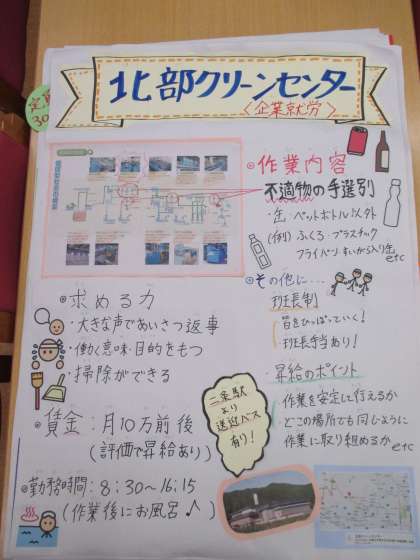 北部クリーンセンター
〈企業就労〉
定員
30
◎作業内容
不適物の手選別
・缶・ペットボトル以外
(例) ふくろ・プラスチック
フライパン・すいがら入り缶
etc
◎その他に…
班長制
皆をひっぱっていく!
班長手当あり!
昇給のポイント
・作業を安定して行えるか
・どこの場所でも同じように
作業に取り組めるか etc
◎求める力
・大きな声であいさつ返事
・働く意味・目的をもつ
・掃除ができる
◎賃金:月10万前後
(評価で昇給あり)
二条駅
より
送迎バス
有り!
◎勤務時間:8:30～16:15
(作業後にお風呂♪)